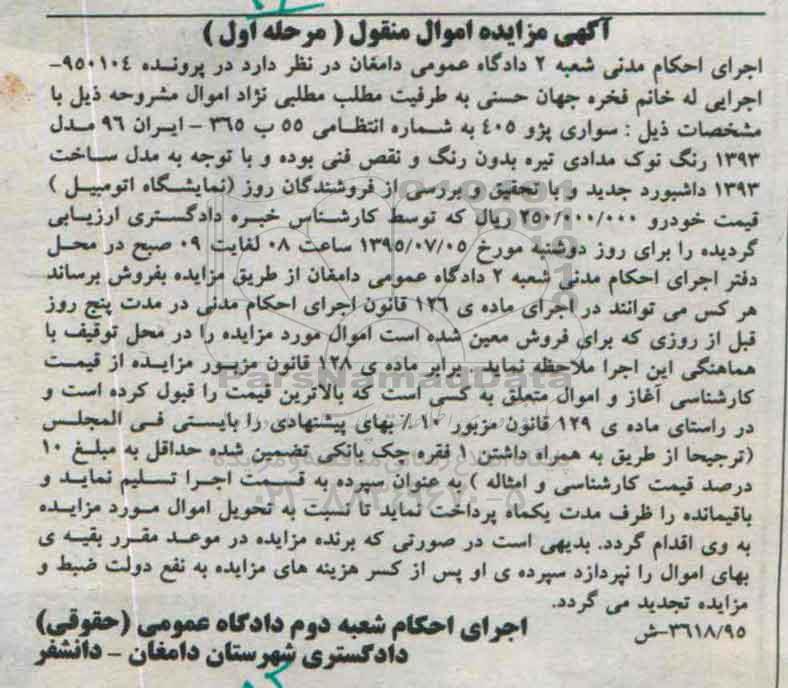 آگهی مزایده اموال منقول ( مرحله اول )
اجرای احکام مدنی شعبه ۲ دادگاه عمومی دامغان در نظر دارد در پرونده ۹۵۰۱۰٤-
اجرایی له خانم فخره جهان حسنی به طرفیت مطلب مطلبی نژاد اموال مشروحه ذیل با
مشخصات ذیل : سواری پژو ٤۰۵ به شماره انتظامی ۵۵ ب ۳٦۵ - ایران ۹٦ مدل
۱۳۹۳ رنگ نوک مدادی تیره بدون رنگ و نقص فنی بوده و با توجه به مدل ساخت
۱۳۹۳ داشبورد جدید و با تحقیق و بررسی از فروشندگان روز (نمایشگاه اتومبیل )
قیمت خودرو ۲۵۰/۰۰۰/۰۰۰ ریال که توسط کارشناس خبره دادگستری ارزیابی
گردیده را برای روز دوشنبه مورخ ۱۳۹۵/۰۷/۰۵ ساعت ۰۸ لغایت ۰۹ صبح در محل
دفتر اجرای احکام مدنی شعبه ۲ دادگاه عمومی دامغان از طریق مزایده بفروش برساند
هر کس می توانند در اجرای ماده ی ۱۲٦ قانون اجرای احکام مدنی در مدت پنج روز
قبل از روزی که برای فروش معین شده است اموال مورد مزایده را در محل توقیف با
هماهنگی این اجرا ملاحظه نماید . برابر ماده ی ۱۲۸ قانون مزبور مزایده از قیمت
کارشناسی آغاز و اموال متعلق به کسی است که بالاترین قیمت را قبول کرده است و
در راستای ماده ی ۱۲۹ قانون مزبور ۱۰ ٪ بهای پیشنهادی را بایستی فی المجلس
(ترجیحا از طریق به همراه داشتن ۱ فقره چک بانکی تضمین شده حداقل به مبلغ ۱۰
درصد قیمت کارشناسی و امثاله ) به عنوان سپرده به قسمت اجرا تسلیم نماید و
باقیمانده را ظرف مدت یکماه پرداخت نماید تا نسبت به تحویل اموال مورد مزایده
به وی اقدام گردد. بدیهی است در صورتی که برنده مزایده در موعد مقرر بقیه ی
بهای اموال را نپردازد سپرده ی او پس از کسر هزینه های مزایده به نفع دولت ضبط و
مزایده تجدید می گردد.
۳٦۱۸/۹۵-ش
اجرای احکام شعبه دوم دادگاه عمومی (حقوقی)
دادگستری شهرستان دامغان - دانشفر
ParsNamadData
۰۲۱-۸۸۳٤۹٦۷۰-۵